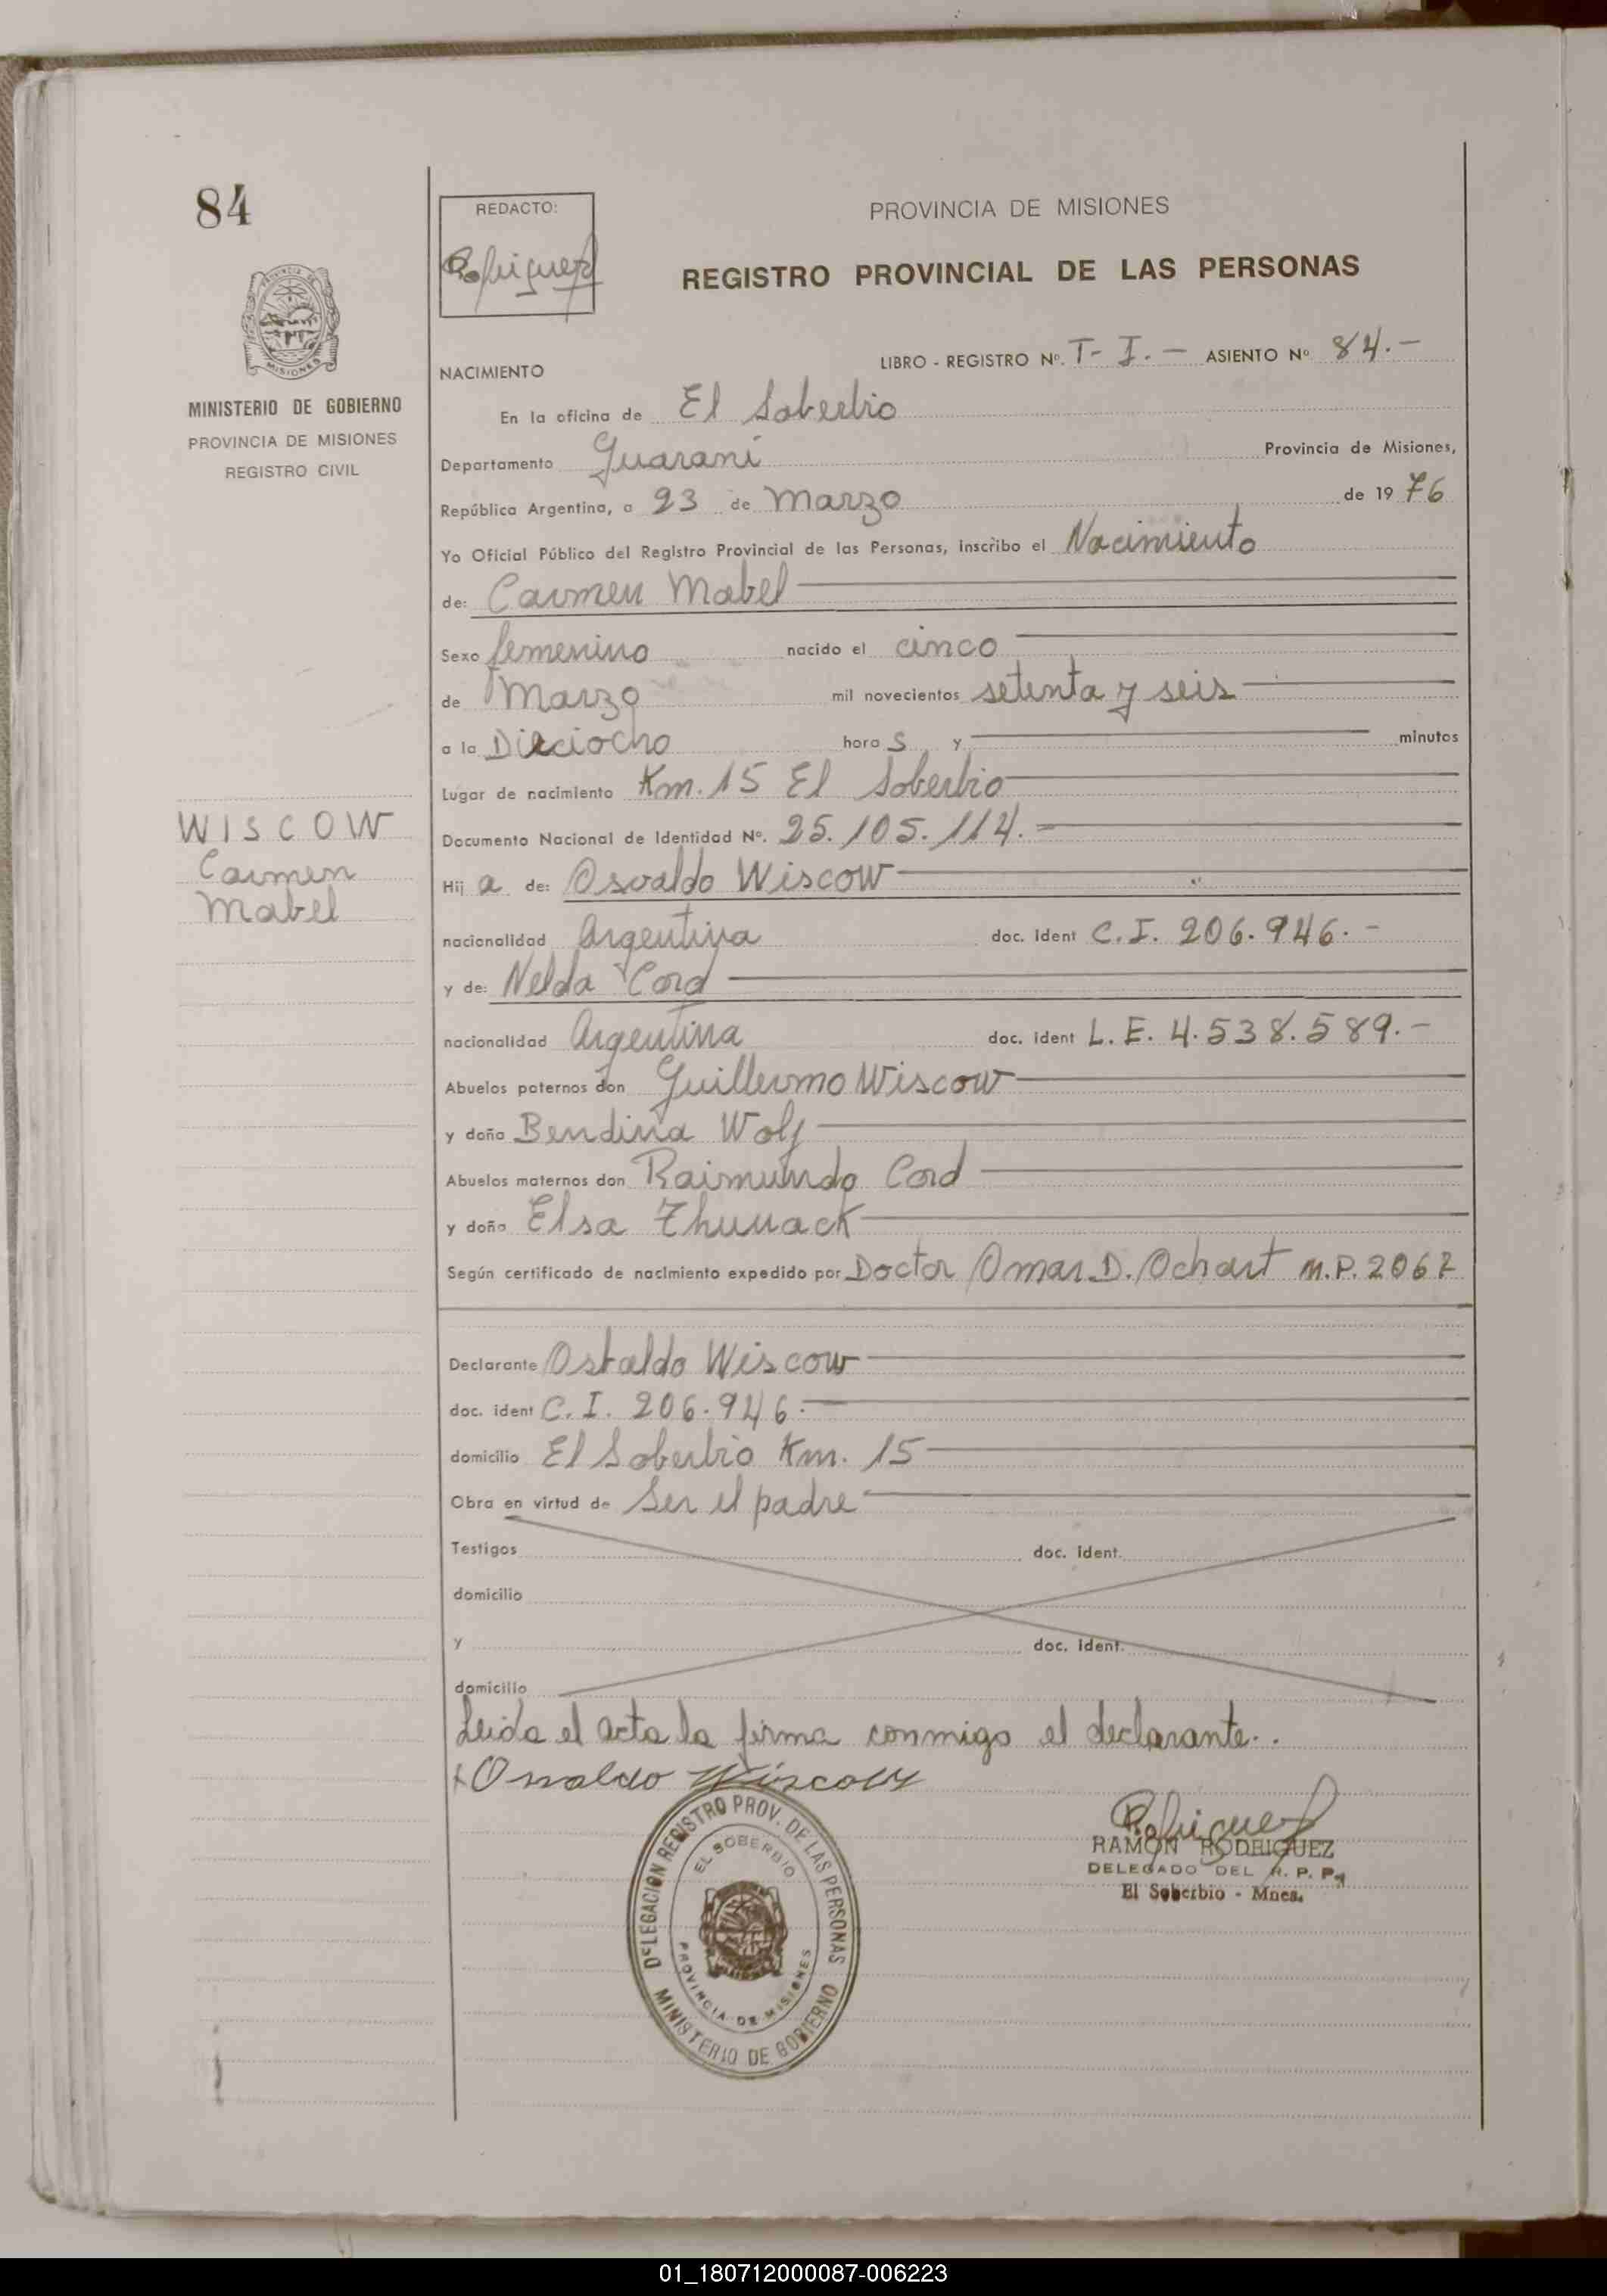 84
MINISTERIO DE GOBIERNO
PROVINCIA DE MISIONES
REGISTRO CIVIL
WISCOW
Carmen
Mabel
REDACTO:
Rodriguez
PROVINCIA DE MISIONES
REGISTRO PROVINCIAL DE LAS PERSONAS
LIBRO - REGISTRO Nº. T- I. - ASIENTO Nº 84.-
NACIMIENTO
En la oficina de El Soberbio
Departamento Guarani Provincia de Misiones,
República Argentina, a 23 de Marzo de 1976
Yo Oficial Público del Registro Provincial de las Personas, inscribo el Nacimiento
de: Carmen Mabel
Sexo femenino nacido el cinco
de Marzo mil novecientos setenta y seis
a la Dieciocho hora s y minutos
Lugar de nacimiento Km. 15 El Soberbio
Documento Nacional de Identidad Nº. 25.105.114.-
Hij a de: Osvaldo Wiscow
nacionalidad Argentina doc. ident C.I. 206.946.-
y de: Nelda Cord
nacionalidad Argentina doc. ident L.E. 4.538.589.-
Abuelos paternos don Guillermo Wiscow
y doña Bendina Wolf
Abuelos maternos don Raimundo Cord
y doña Elsa
Según certificado de nacimiento expedido por Doctor Omar D. Ochart M.P. 2067
Declarante Osvaldo Wiscow
doc. ident C.I. 206.946.
domicilio El Soberbio Km. 15
Obra en virtud de Ser el padre
Testigos doc. ident.
domicilio
y doc. ident.
domicilio
Leida el acta la firma conmigo el declarante..
x Osvaldo Wiscow
Rodriguez
RAMON RODRIGUEZ
DELEGADO DEL R. P. P.
El Soberbio - Mnes.
DELEGACION REGISTRO PROV. DE LAS PERSONAS
EL SOBERBIO
PROVINCIA DE MISIONES
MINISTERIO DE GOBIERNO
01_180712000087-006223